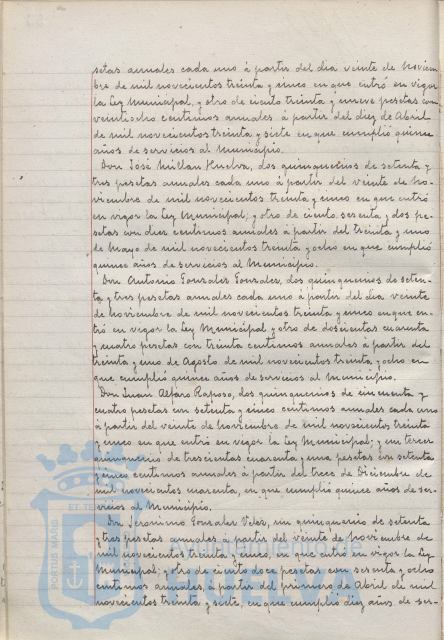 setas anuales cada uno á partir del dia veinte de Noviem-
bre de mil novecientos treinta y cinco en que entró en vigor
la Ley Municipal, y otro de ciento treinta y nueve pesetas con
veintiocho centimos anuales á partir del diez de Abril
de mil novecientos treinta y siete en que cumplió quince
años de servicios al Municipio.
Don José Millan Huelva, dos quinquenios de setenta y
tres pesetas anuales cada uno á partir del veinte de No-
viembre de mil novecientos treinta y cinco en que entró
en vigor la Ley Municipal; y otro de ciento sesenta y dos pe-
setas con diez centimos anuales á partir del treinta y uno
de Mayo de mil novecientos treinta y ocho en que cumplió
quince años de servicios al Municipio.
Don Antonio Gonzalez Gonzalez, dos quinquenios de seten-
ta y tres pesetas anuales cada uno á partir del dia veinte
de Noviembre de mil novecientos treinta y cinco en que en-
tró en vigor la Ley Municipal y otro de doscientas cuarenta
y cuatro pesetas con treinta centimos anuales á partir del
treinta y uno de Agosto de mil novecientos treinta y ocho en
que cumplió quince años de servicios al Municipio.
Don Juan Alfaro Raposo, dos quinquenios de cincuenta y
cuatro pesetas con setenta y cinco centimos anuales cada uno
á partir del veinte de Noviembre de mil novecientos treinta
y cinco en que entró en vigor la Ley Municipal; y un tercer
quinquenio de trescientas cuarenta y una pesetas con setenta
y cinco centimos anuales á partir del trece de Diciembre de
mil novecientos cuarenta, en que cumplió quince años de ser-
vicios al Municipio.
Don Jeronimo Gonzalez Velez, un quinquenio de setenta
y tres pesetas anuales á partir del veinte de Noviembre de
mil novecientos treinta y cinco, en que entró en vigor la Ley
Municipal; y otro de ciento doce pesetas con sesenta y ocho
centimos anuales, á partir del primero de Abril de mil
novecientos treinta y siete, en que cumplió diez años de ser-
PORTUS MARIS
ET TE